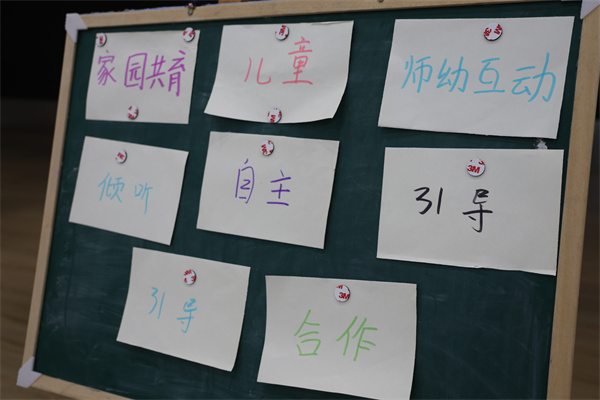 家园共育
儿童
师幼互动
倾听
自主
引导
引导
合作
3M
3M